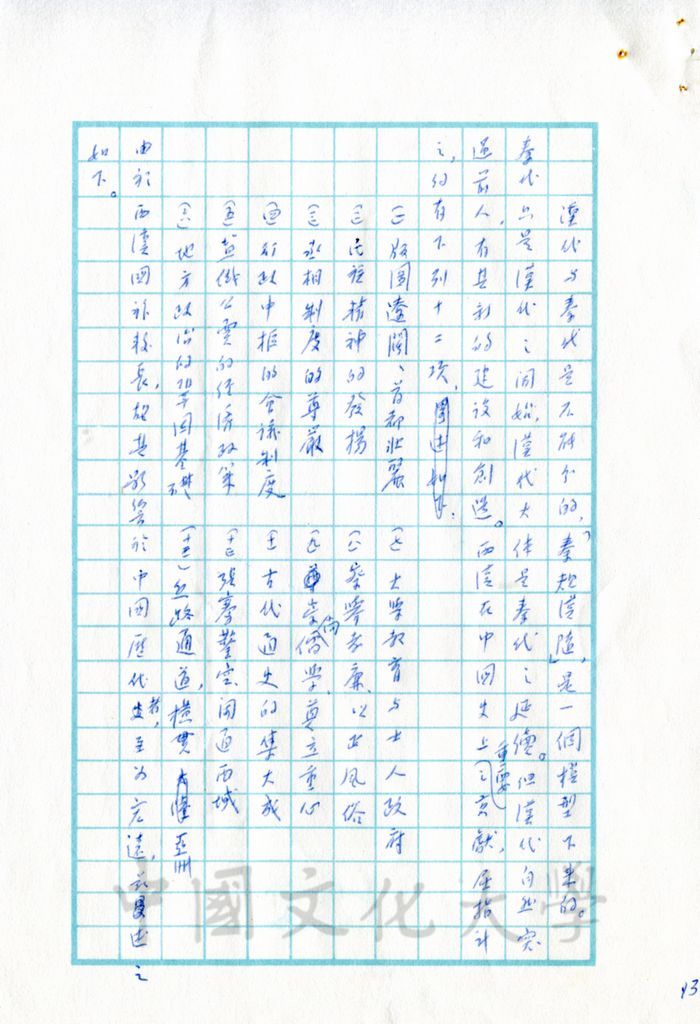 漢代与秦代是不能分的,「秦規漢隨」是一個模型下來的。
秦代只是漢代之開始,漢代大体是秦代之延續。但漢代自然突
過前人,有其新的建設和創造。西漢在中國史上重要之貢獻,屈指計
之,約有下列十二項,
(一)版圖遼闊、首都壯麗
(二)民族精神的發揚
(三)丞相制度的尊嚴
(四)行政中樞的會議制度
(五)鹽鐵公賣的經濟政策
(六)地方政治的鞏固基礎
(七)大學教育与士人政府
(八)察舉孝廉、以正風俗
(九)尊崇儒學、奠立重心
(十)古代通史的集大成
(十一)張騫鑿空開通西域
(十二)絲路通道,橫貫亞洲
由於西漢國祚較長,故其影響於中國歷代者,至为宏遠,分述之
如下。
中國文化大學
43